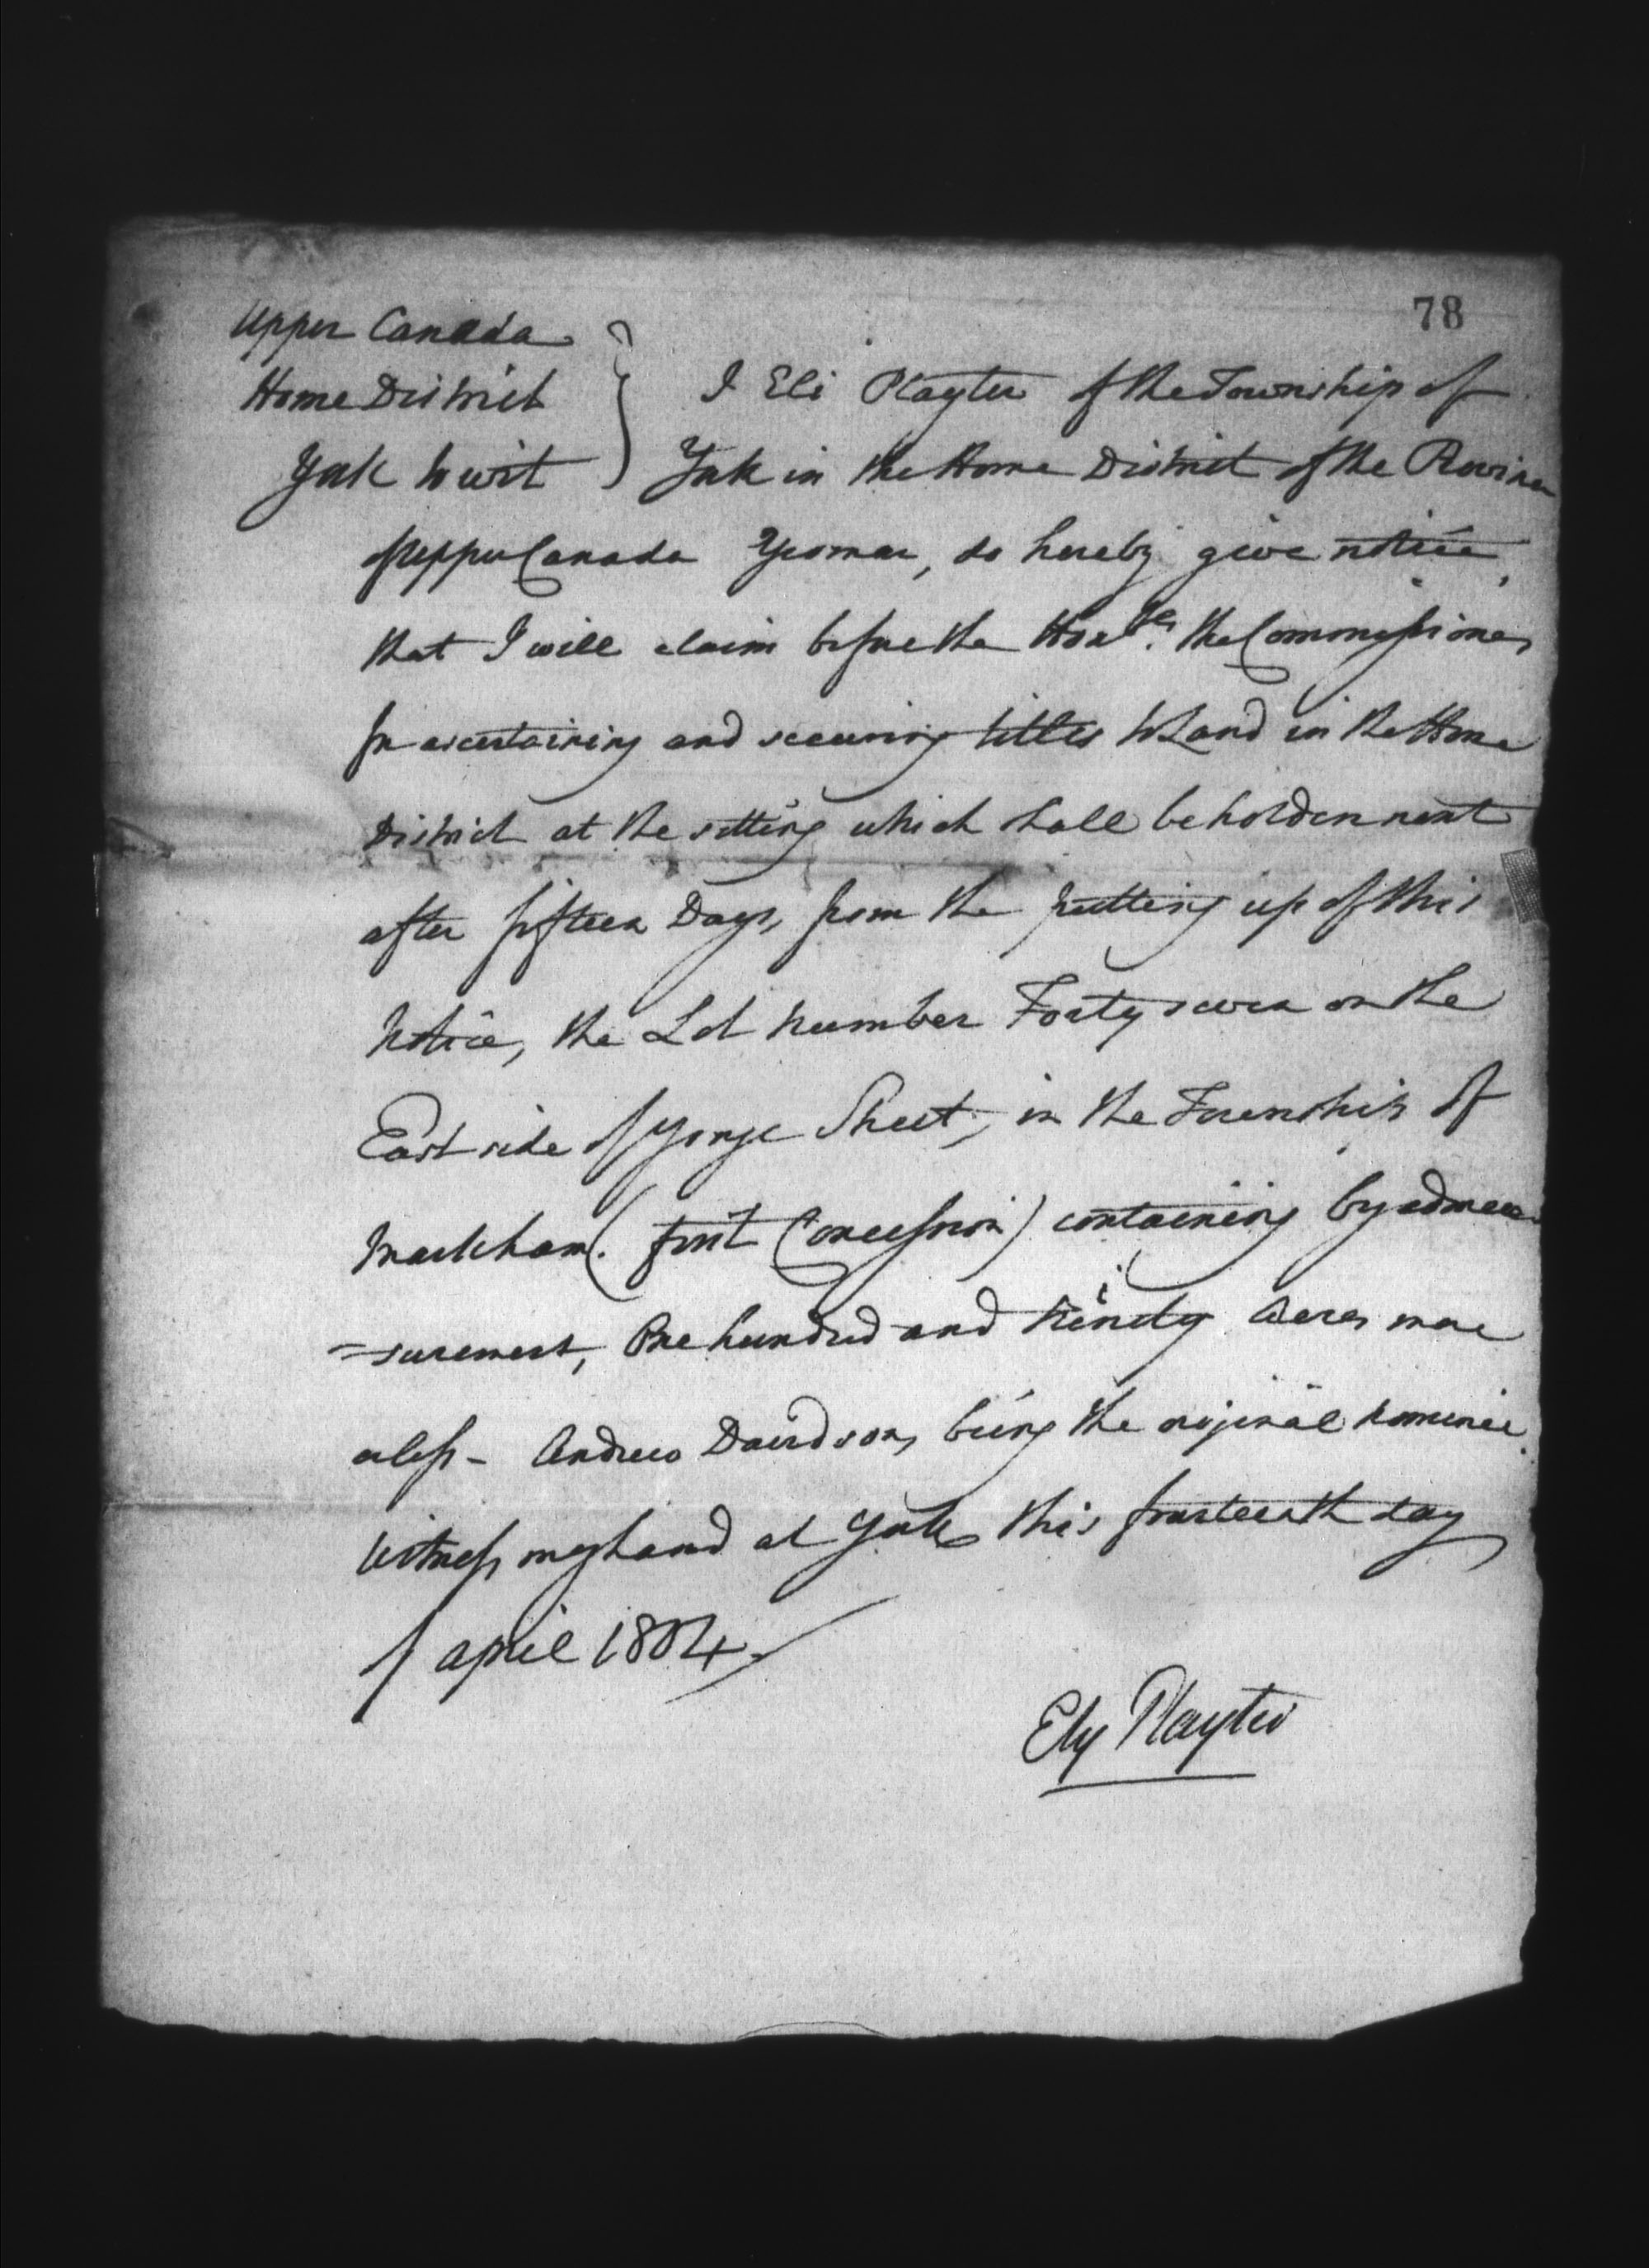 78
Upper Canada
Home District
York to wit
I Eli Playter of the Township of
York in the Home District of the Province
of Upper Canada Yeoman, do hereby give notice,
that I will claim before the Hon.bles the Commissioners
for ascertaining and securing titles to Land in the Home
District at the sitting which shall be holden next
after fifteen Days, from the putting up of this
Notice, the Lot Number Forty seven on the
East side of Yonge Street, in the Township of
Markham (first Concession) containing by admea=
=surement, One hundred and Ninety Acres more
or less - Andrew Davidson, being the original nominee.
Witness my hand at York this fourteenth day
of april 1804.
Ely Playter